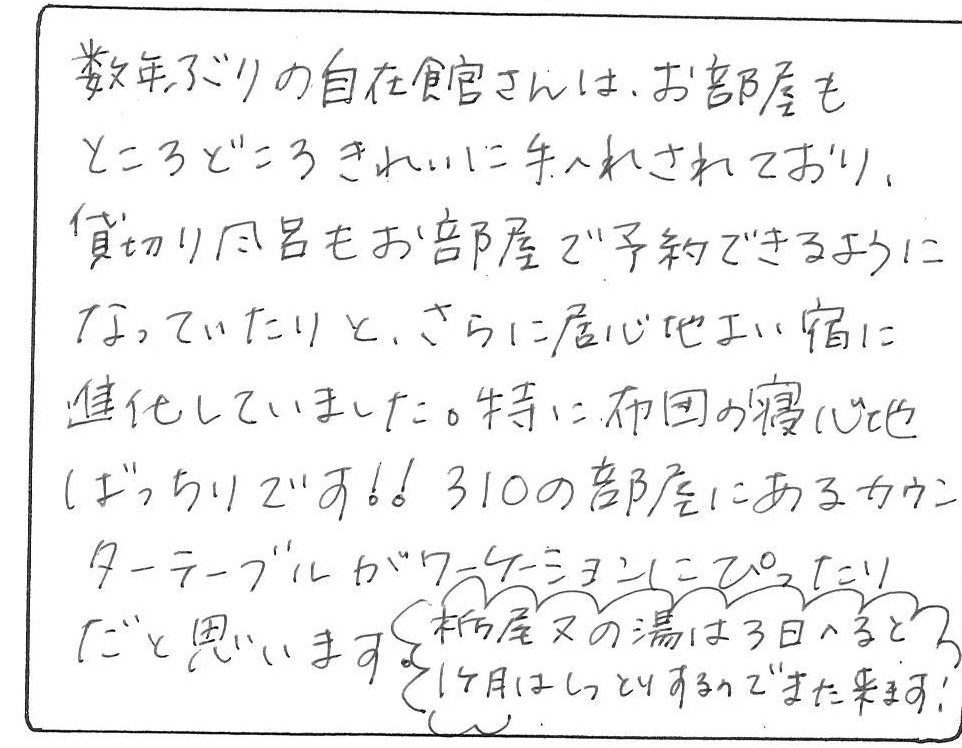 数年ぶりの自在館さんは、お部屋も
ところどころきれいに手入れされており、
貸切り風呂もお部屋で予約できるように
なっていたりと、さらに居心地よい宿に
進化していました。特に布団の寝心地
ばっちりです!! 310の部屋にあるカウン
ターテーブルがワーケーションにぴったり
だと思います。
栃尾又の湯は3日入ると
1ヶ月はしっとりするのでまた来ます!